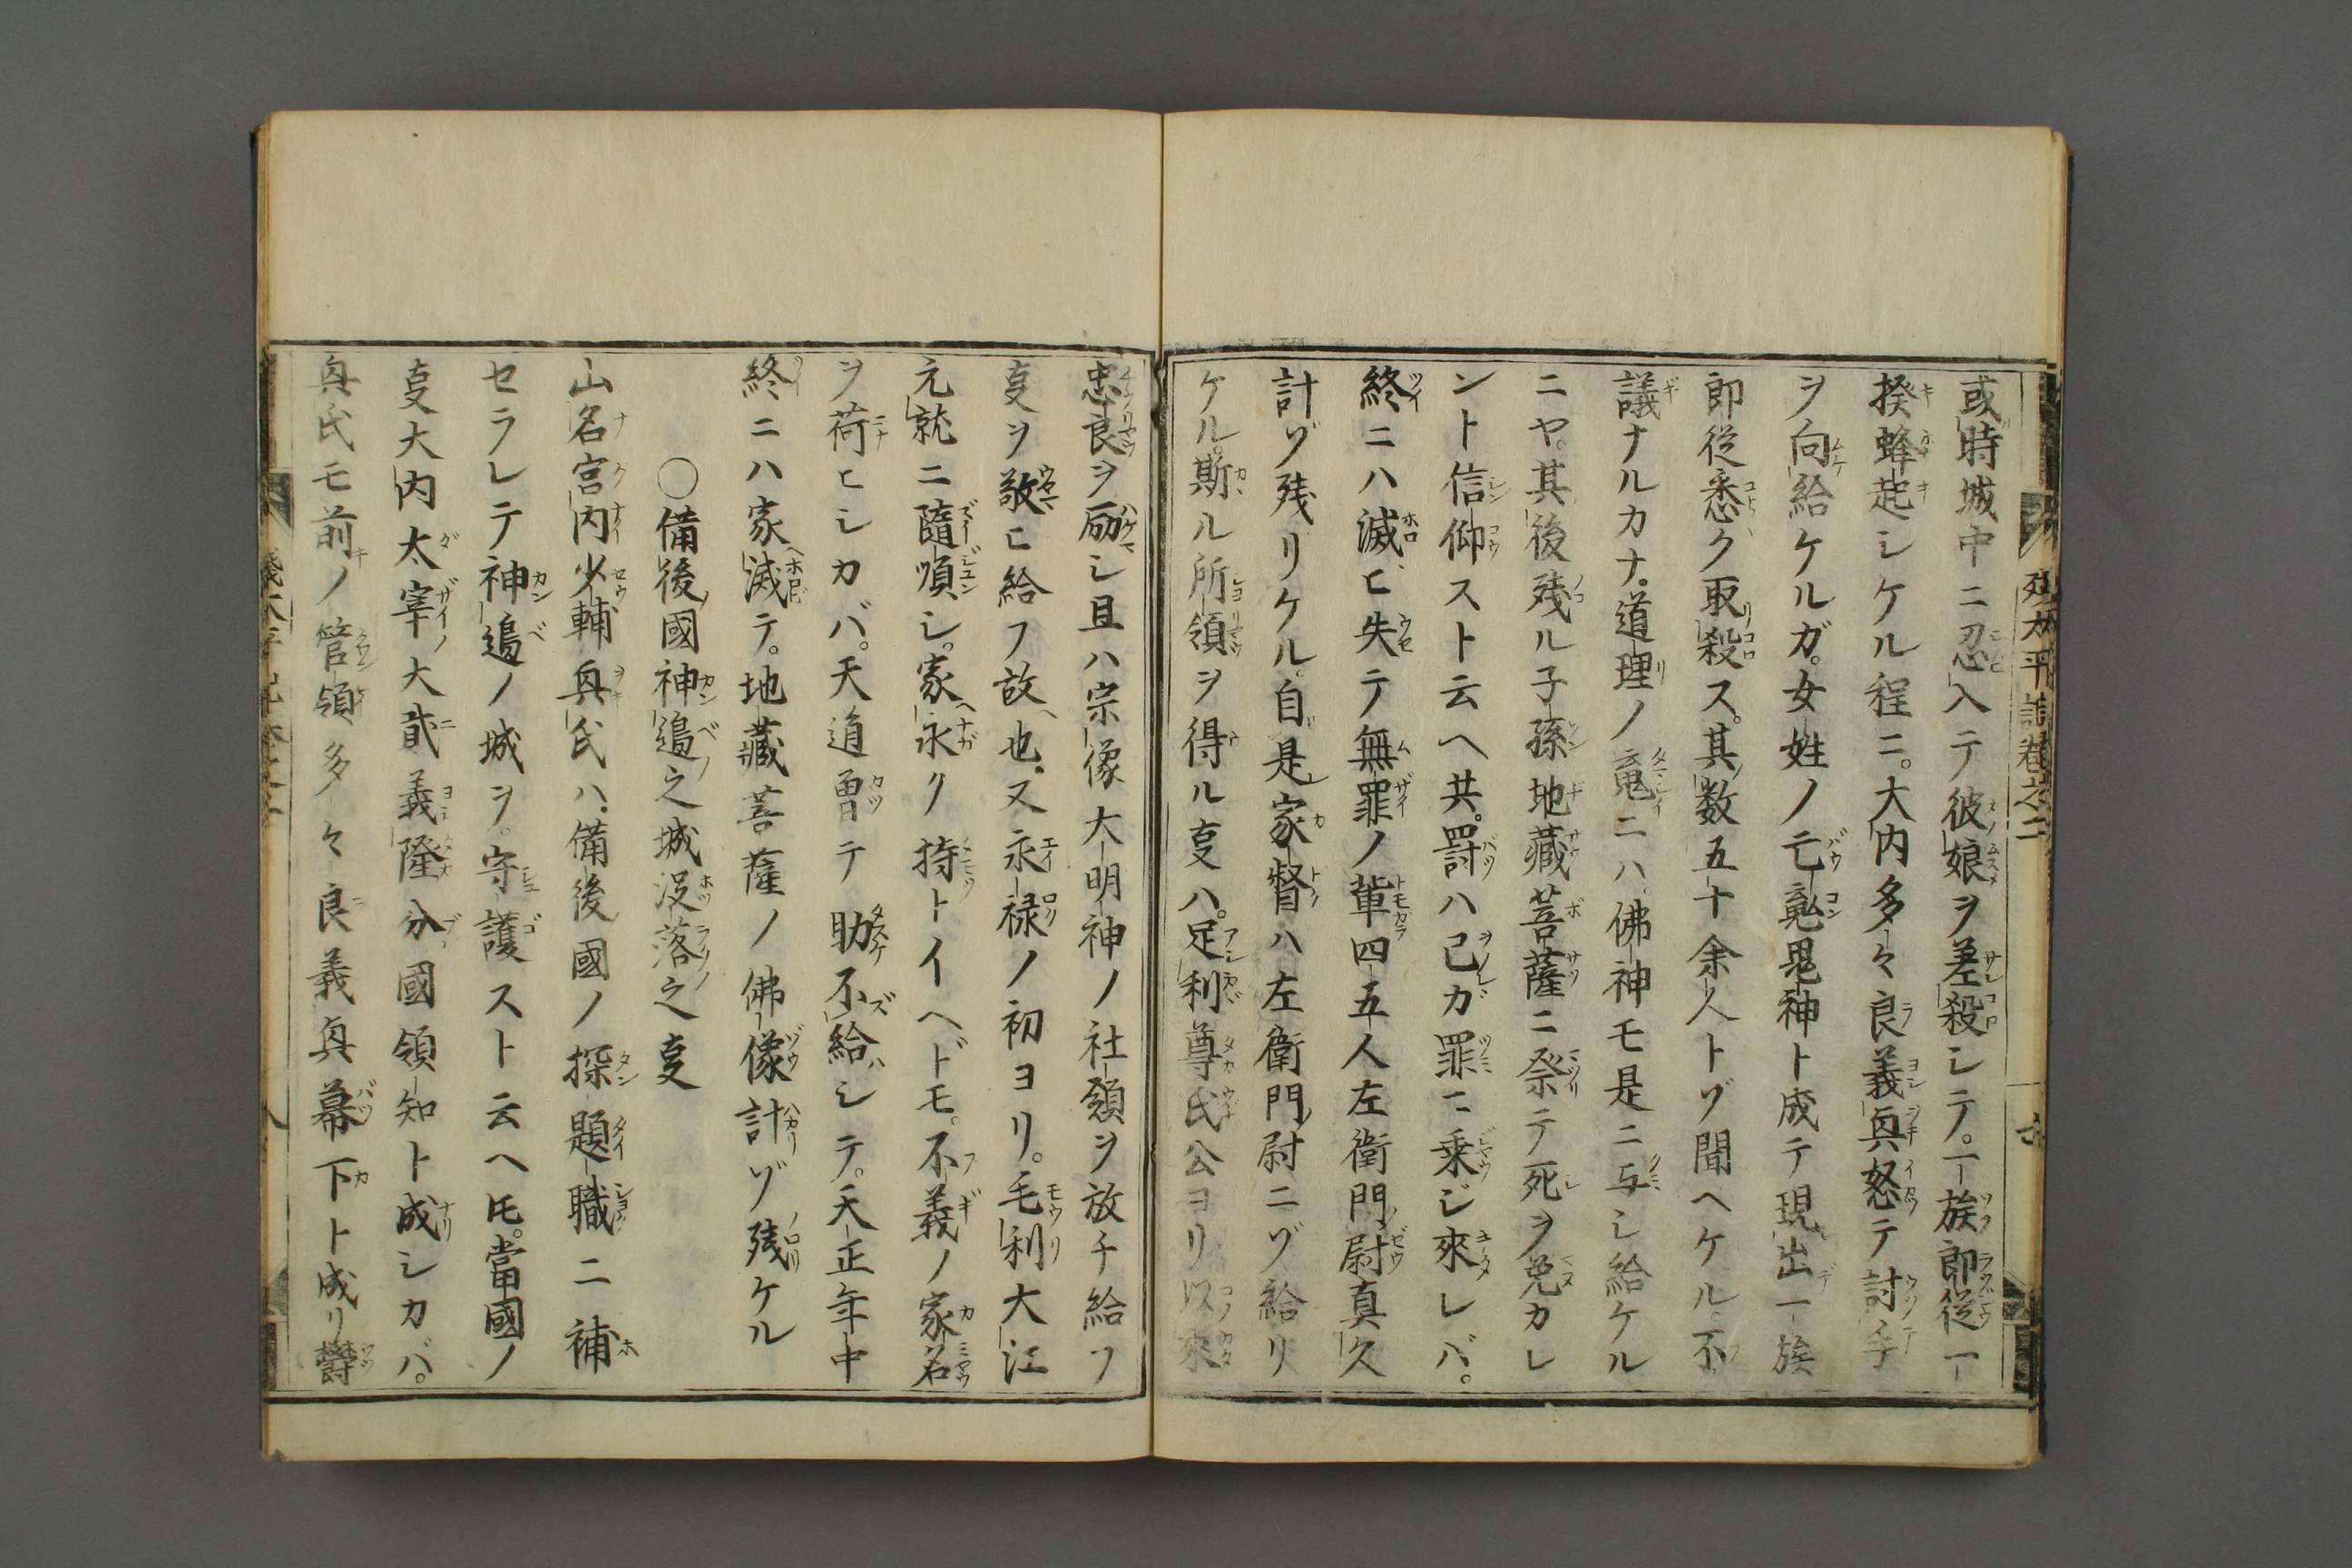 或時城中ニ忍入テ彼娘ヲ差殺シテ。一族郎従一
揆蜂起シケル程ニ。大内多々良義真怒テ討手
ヲ向給ケルガ。女姓ノ亡䰟鬼神ト成テ現出一族
郎従悉ク取殺ス。其数五十余人トゾ聞ヘケル不
議ナルカナ。道理ノ䰟ニハ佛神モ是ニ与シ給ケル
ニヤ。其後残ル子孫地蔵菩薩ニ祭テ死ヲ免カレ
ント信仰スト云ヘ共。罸ハ己ガ罪ニ乗ジ來レバ。
終ニハ滅ヒ失テ無罪ノ輩四五人左衛門尉真久
計ゾ残リケル。自是家督ハ左衛門尉ニゾ給リ
ケル。斯ル所領ヲ得ル叓ハ。足利尊氏公ヨリ以來
忠良ヲ励シ且ハ宗像大明神ノ社領ヲ放チ給フ
叓ヲ敬ヒ給フ故也。又永禄ノ初ヨリ。毛利大江
元就ニ隨順シ。家永ク持トイヘドモ。不義ノ家名
ヲ荷ヒシカバ。天道曽テ助不給シテ。天正年中
終ニハ家滅テ。地藏菩薩ノ佛像計ゾ残ケル
〇備後國神邉之城没落之叓
山名宮内少輔真氏ハ。備後國ノ探題職ニ補
セラレテ神邉ノ城ヲ。守護スト云ヘ𪜈。當國ノ
叓大内太宰大貳義隆分國領知ト成シカバ。
真氏モ前ノ管領多々良義真幕下ト成リ欝